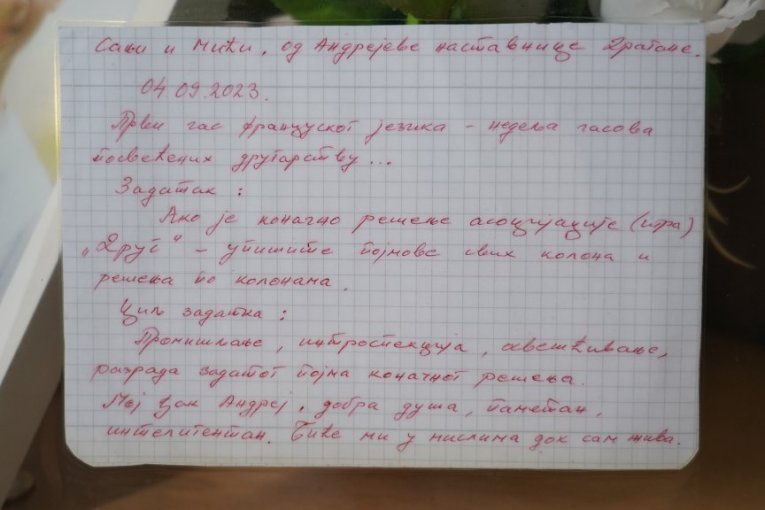 Сањи и Мики, од Андрејеве наставнице Драгане.
04.09.2023.
Први час француског језика - недеља часова
посвећених другарству...
Задатак :
Ако је коначно решење асоцијације (игра)
„Друг“ - упишите појмове свих колона и
решења по колонама.
Циљ задатка :
Промишљање, интроспекција, освешћивање,
разрада задатог појма коначног решења.
Мој ђак Андреј, добра душа, паметан,
интелигентан. Биће ми у мислима док сам жива.